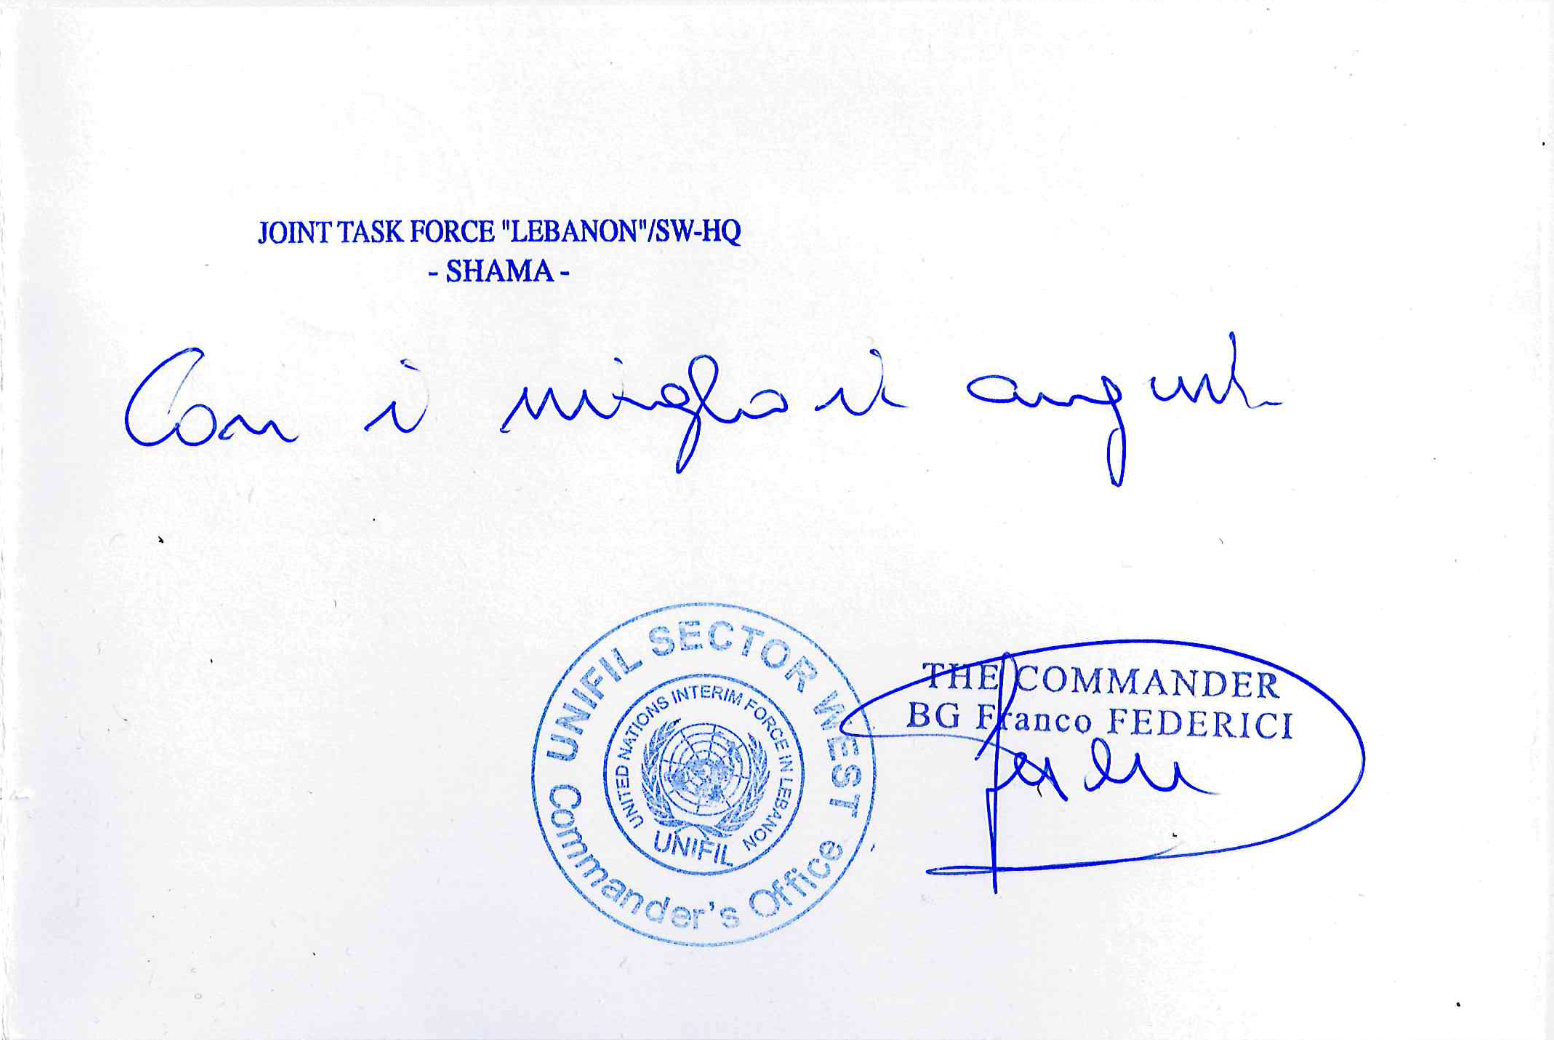 JOINT TASK FORCE "LEBANON"/SW-HQ
- SHAMA -
Con i migliori auguri
UNIFIL SECTOR WEST
UNITED NATIONS INTERIM FORCE IN LEBANON
UNIFIL
Commander's Office
THE COMMANDER
BG Franco FEDERICI